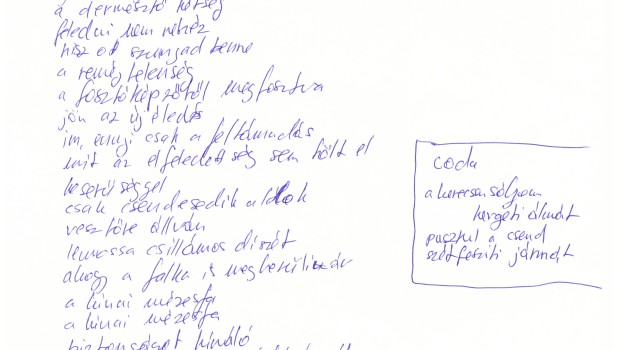 a dermesztő hétség
feledni nem nehéz
hisz ott szunnyad benne
a reménytelenség
a fosztóképzőtől megfosztva
jön az új éledés
im, ennyi csak a feltámadás
mit az elfeledettség sem hölt el
keserűséggel
csak csendesedik a
vesztőre állván
lemossa csillámos díszét
ahogy a falka is megkerül
a kínai mézesfa
a kínai mézesfa
biztonságot kínáló
coda
a kerecsensólyom
kergeti álmát
pusztul a csend
szétfeszíti jármát